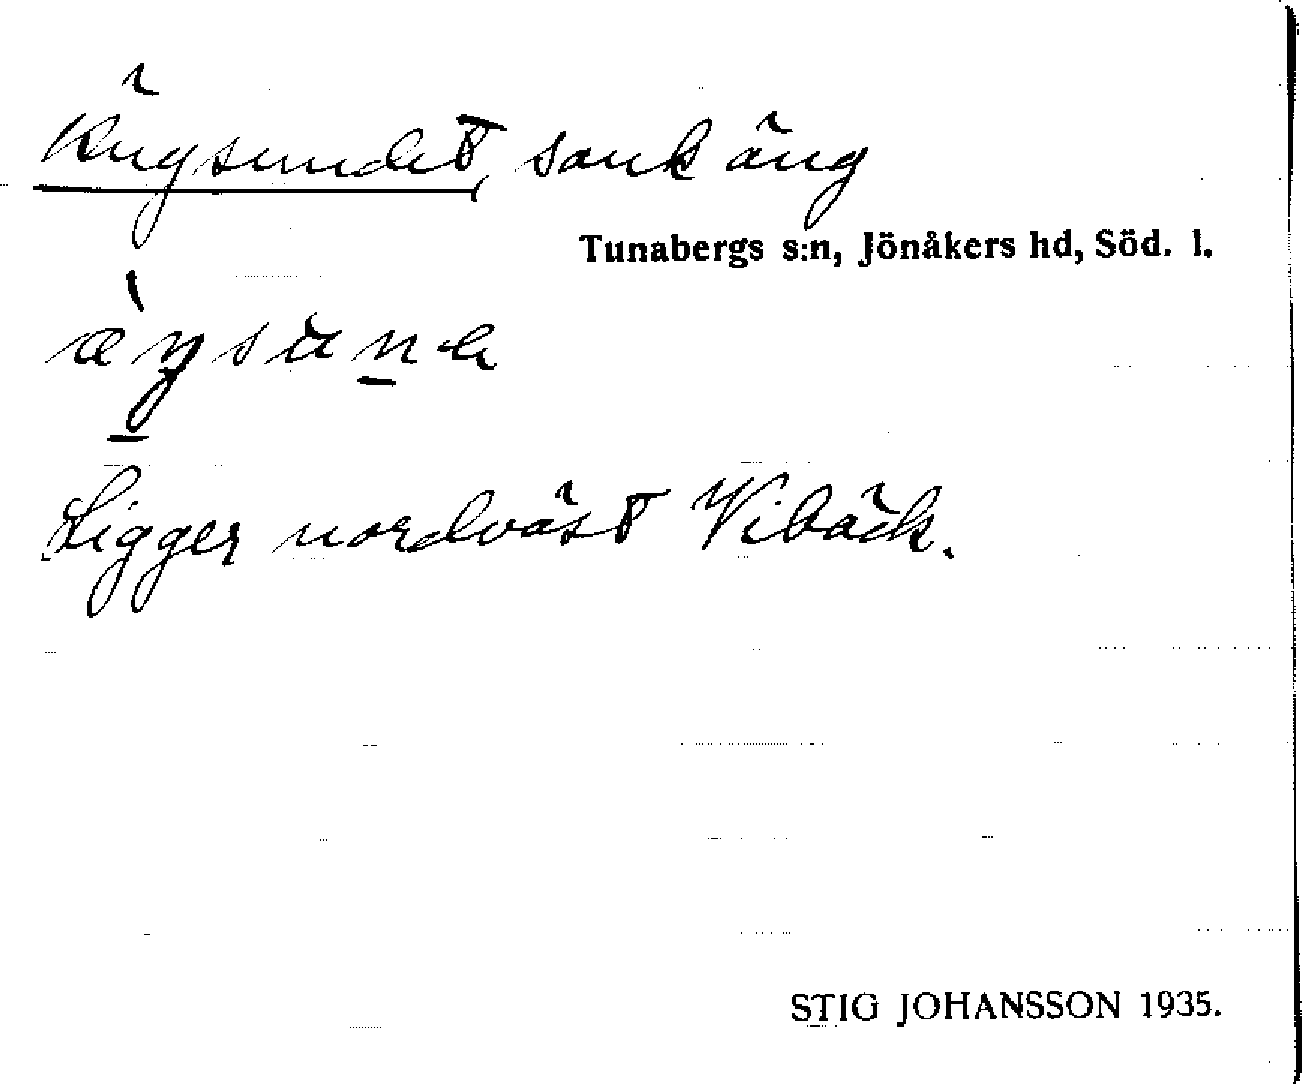 Ängsundet, sank äng
Tunabergs s:n, Jönåkers hd, Söd. l.
Ligger nordväst Vibäck.
STIG JOHANSSON 1935.